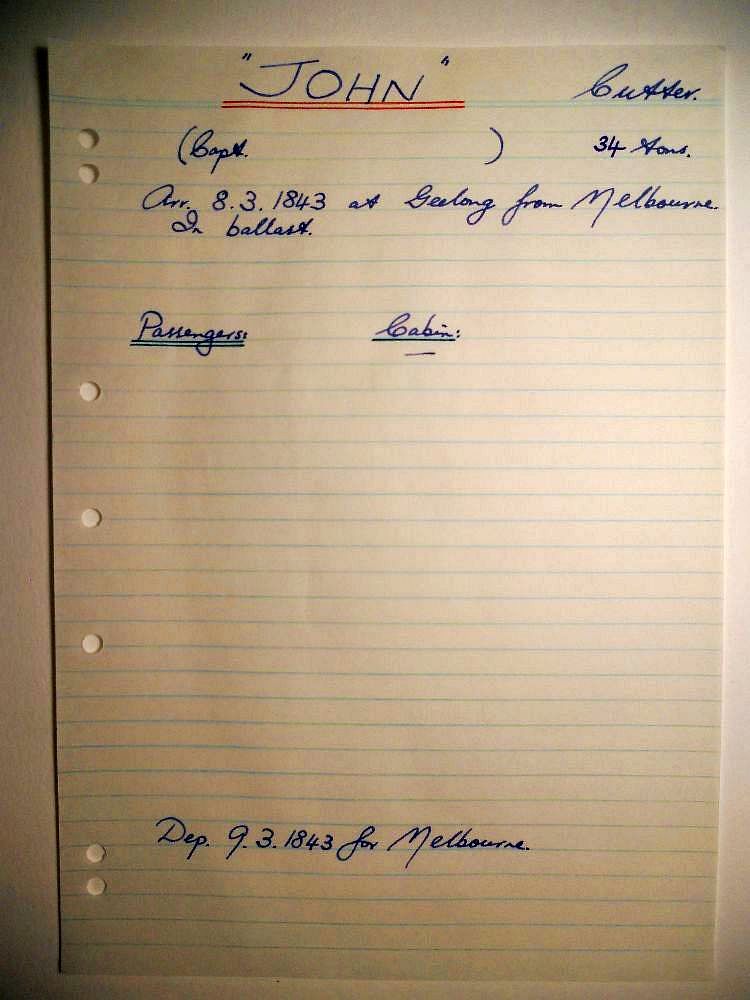 "JOHN" Cutter.
(Capt. ) 34 tons.
Arr. 8.3.1843 at Geelong from Melbourne.
In ballast.
Passengers: Cabin:
—
Dep. 9.3.1843 for Melbourne.